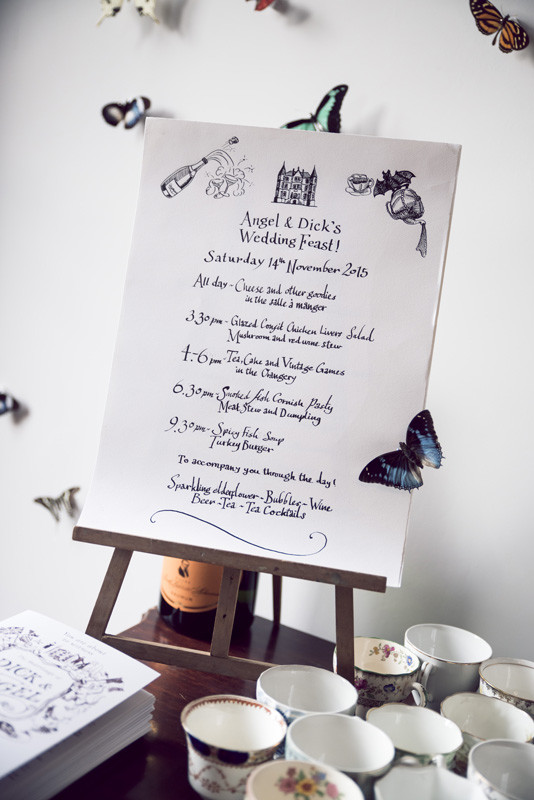 Angel & Dick's
Wedding Feast!
Saturday 14th November 2015
All day - Cheese and other goodies
in the salle à manger
3.30pm - Glazed Confit Chicken Livers Salad
Mushroom and red wine stew
4-6pm - Tea, Cake and Vintage Games
in the Orangery
6.30pm - Smoked fish Cornish Pasty
Meat Stew and Dumpling
9.30pm - Spicy Fish Soup
Turkey Burger
To accompany you through the day!
Sparkling elderflower - Bubbles - Wine
Beer - Tea - Tea Cocktails
DICK &